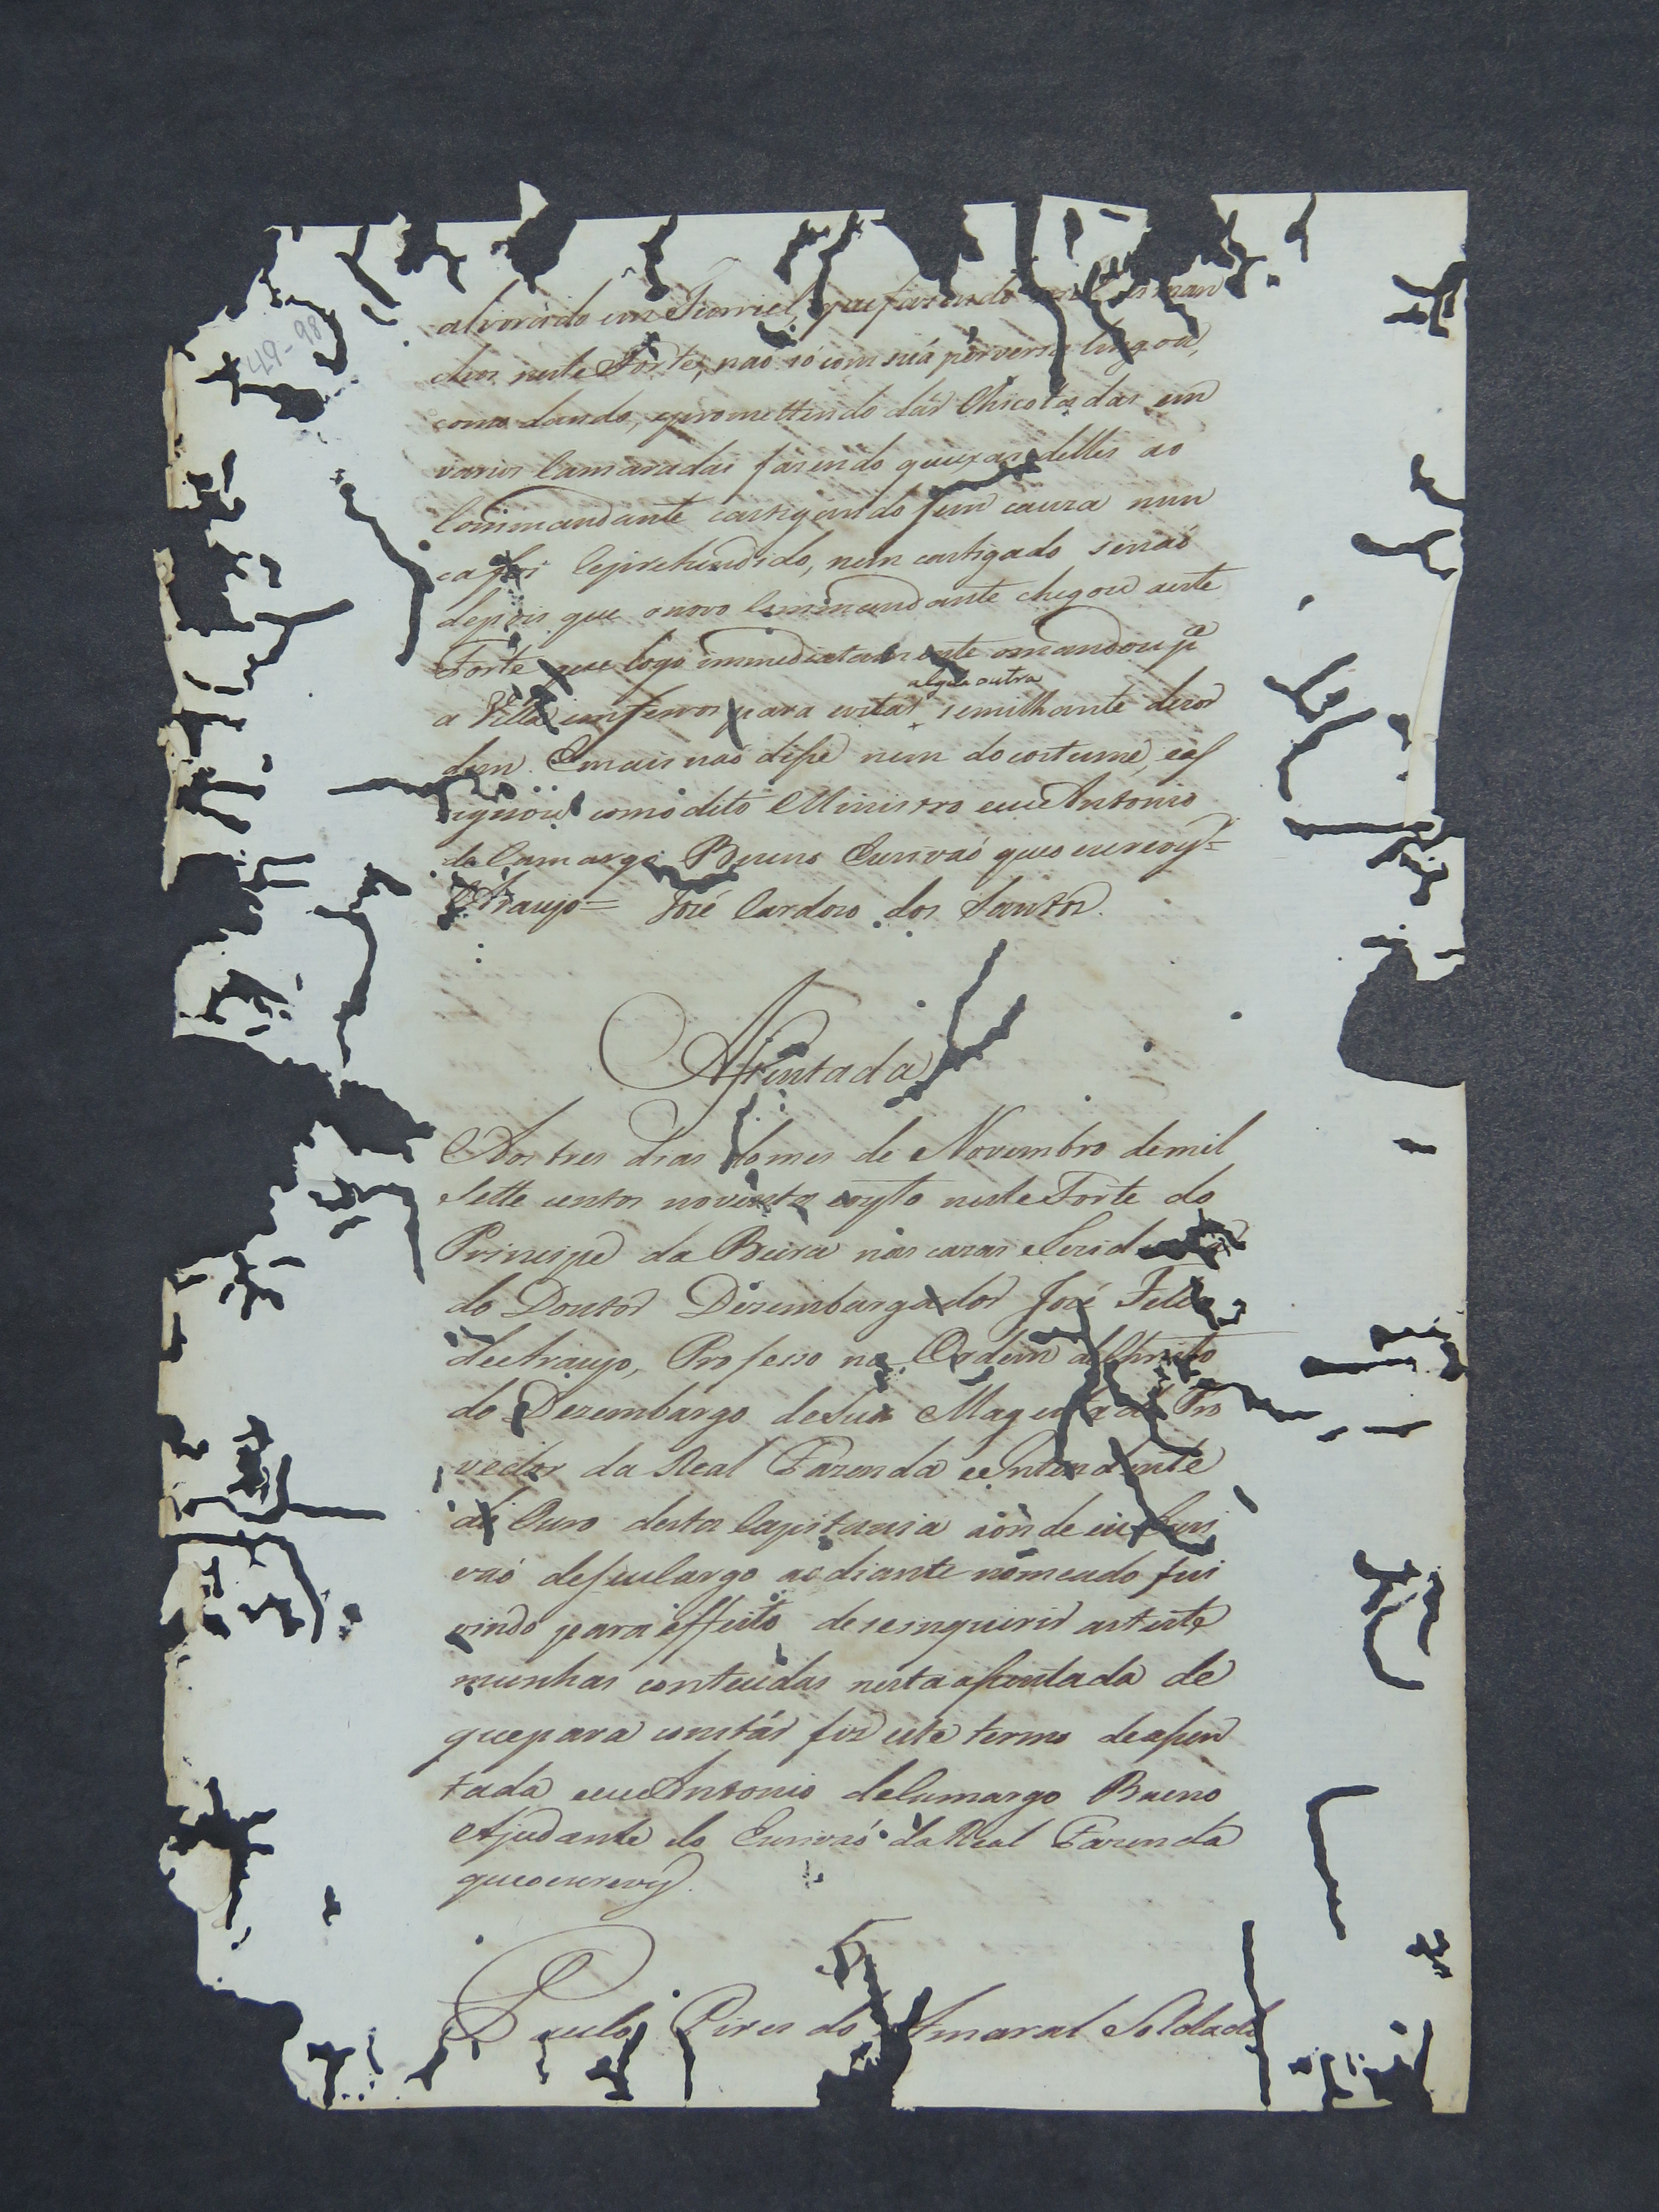 alvorado em Furriel, que fazendo seus man
dos neste Forte, nao só com súa perversa lingoa,
como dando, epromettendo dár Chicotadas em
varios Camaradas fazendo queixas delles ao
Commandante castigando sem cauza nun
ca foi reprehendido, nem castigado senaó
depois que onovo Commandante chegou aeste
Forte que logo immediatamente omandou pª
a Villa emferros para evitar algũa outra semilhante dezor
dem. Emais naó disse nem do costume, eas
signou como dito Ministro eeu Antonio
de Camargo Bueno Escrivaó queo escrevy=
Araujo= José Cardozo dos Santos.
Assentada
Aos tres dias do mes de Novembro demil
Sette centos noventa eoyto neste Forte do
Principe da Beira nas cazas
do Doutor Dezembargador José Felis
deAraujo, Professo na Ordem deChristo
do Dezembargo deSua Magestade Pro
vedor da Real Fazenda eeIntendente
do Ouro desta Capitania aonde eu Escri
vaó deseuCargo aodiante nomeado fui
vindo para effeito de seinquirir asteste
munhas conteudas nesta assentada de
quepara constár fiz este termo deassen
tada eeu Antonio deCamargo Bueno
Ajudante do Escrivaó da Real Fazenda
queoescrevy.
Paulo Pires do Amaral Soldado